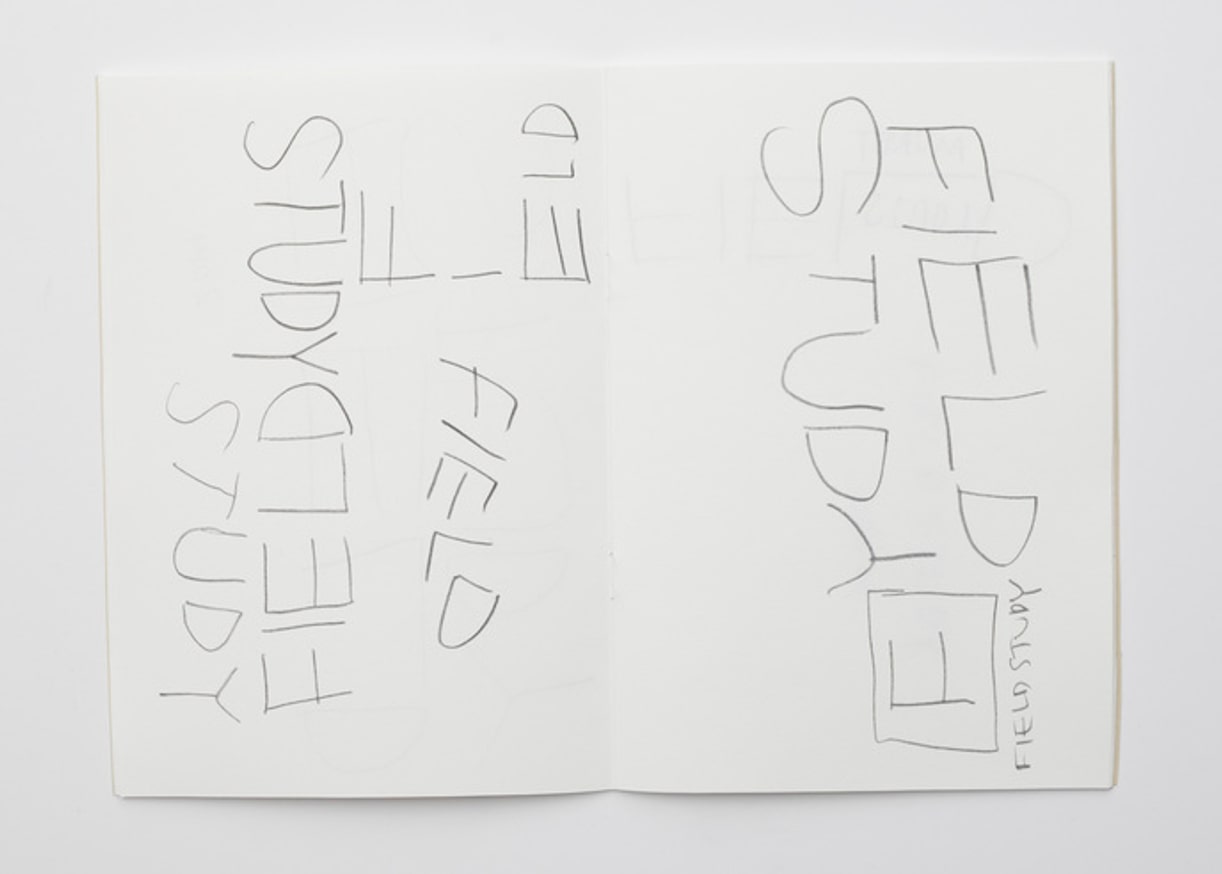 FIELD
STUDY
F
FIELD STUDY
FIELD
FIELD
STUDY
FIELD
STUDY